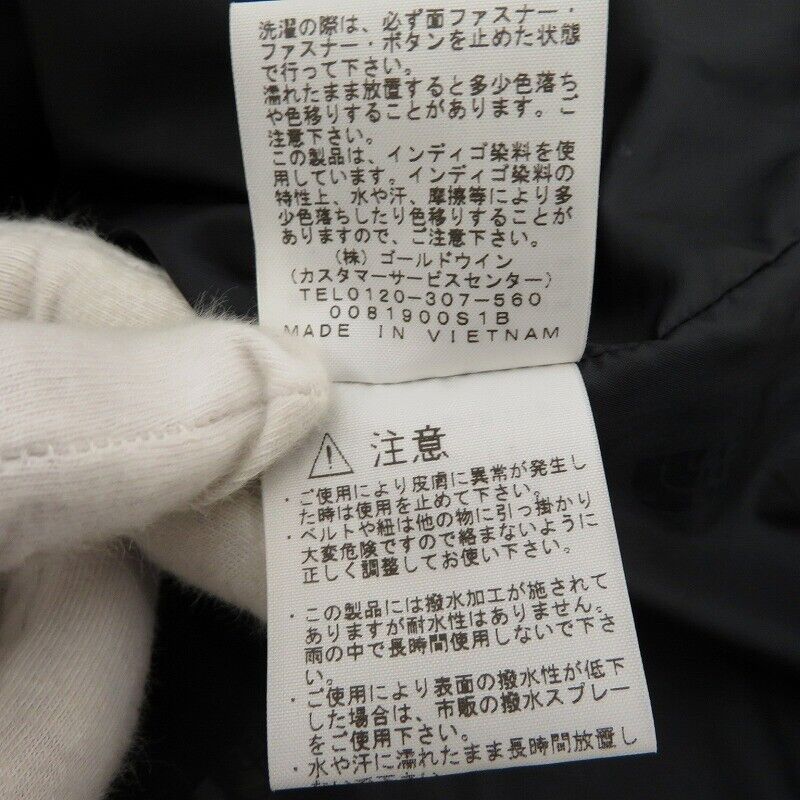 洗濯の際は、必ず面ファスナー・
ファスナー・ボタンを止めた状態
で行って下さい。
濡れたまま放置すると多少色落ち
や色移りすることがあります。ご
注意下さい。
この製品は、インディゴ染料を使
用しています。インディゴ染料の
特性上、水や汗、摩擦等により多
少色落ちしたり色移りすることが
ありますので、ご注意下さい。
（株）ゴールドウイン
（カスタマーサービスセンター）
TEL0120-307-560
0081900S1B
MADE IN VIETNAM
注意
・ご使用により皮膚に異常が発生し
た時は使用を止めて下さい。
・ベルトや紐は他の物に引っ掛かり
大変危険ですので絡まないように
正しく調整してお使い下さい。
・この製品には撥水加工が施されて
ありますが耐水性はありません。
雨の中で長時間使用しないで下さ
い。
・ご使用により表面の撥水性が低下
した場合は、市販の撥水スプレー
をご使用下さい。
・水や汗に濡れたまま長時間放置し